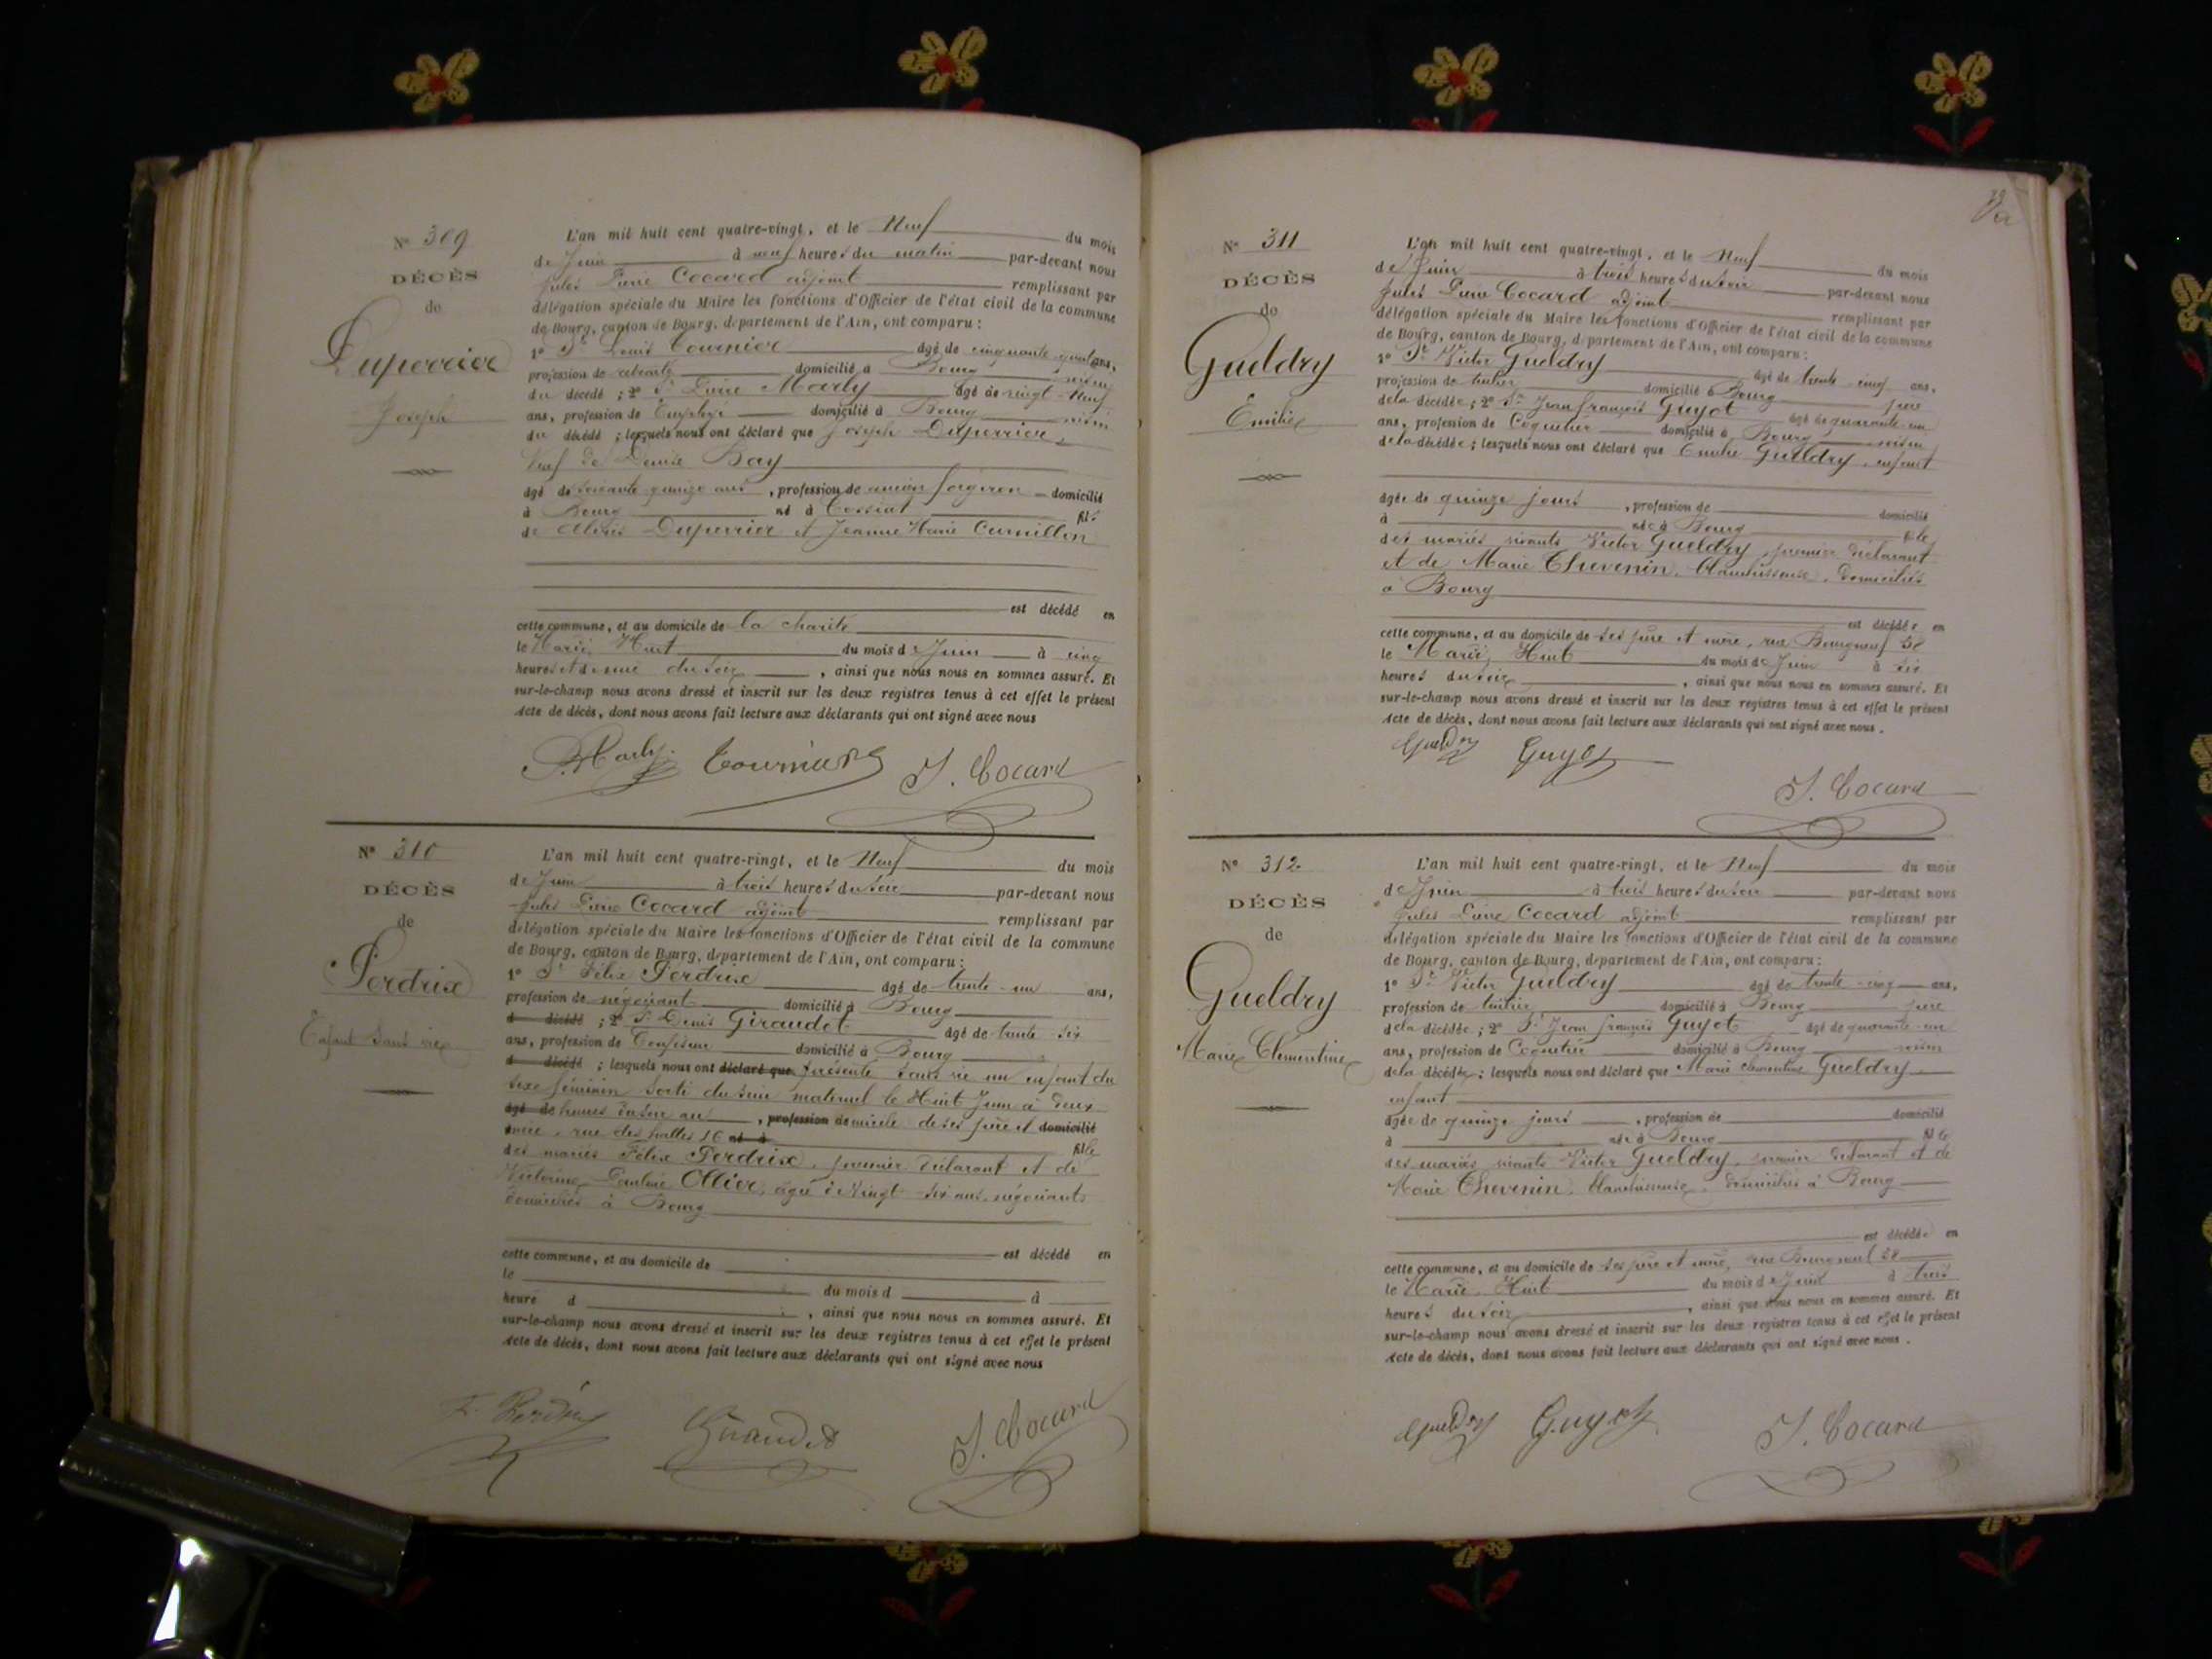 Nº 309
DÉCÈS
de
Duperrier
Joseph
L'an mil huit cent quatre-vingt, et le Neuf du mois
de Juin à neuf heures du matin par-devant nous
Jules Pierre Cocard adjoint remplissant par
délégation spéciale du Maire les fonctions d'Officier de l'état civil de la commune
de Bourg, canton de Bourg, département de l'Ain, ont comparu :
1º Sr Louis Tournier âgé de cinquante quatre ans,
profession de retraité domicilié à Bourg voisin
du décédé ; 2º Sr Pierre Marly âgé de vingt-neuf
ans, profession de Employé domicilié à Bourg voisin
du décédé ; lesquels nous ont déclaré que Joseph Duperrier,
Veuf de Denise Bay
âgé de soixante-quinze ans, profession de ancien forgeron domicilié
à Bourg né à Cossiat fils
de Alexis Duperrier et Jeanne Marie Curnillon
est décédé en
cette commune, et au domicile de la charité
le Mardi, Huit du mois de Juin à cinq
heures et demie du soir, ainsi que nous nous en sommes assuré. Et
sur-le-champ nous avons dressé et inscrit sur les deux registres tenus à cet effet le présent
Acte de décès, dont nous avons fait lecture aux déclarants qui ont signé avec nous
P. Marly Tournier J. Cocard
Nº 310
DÉCÈS
de
Perdrix
Enfant sans vie
L'an mil huit cent quatre-vingt, et le Neuf du mois
de Juin à trois heures du soir par-devant nous
Jules Pierre Cocard adjoint remplissant par
délégation spéciale du Maire les fonctions d'Officier de l'état civil de la commune
de Bourg, canton de Bourg, département de l'Ain, ont comparu :
1º Sr Félix Perdrix âgé de trente-un ans,
profession de négociant domicilié à Bourg
d décédé ; 2º Sr Denis Giraudet âgé de trente-six
ans, profession de Confiseur domicilié à Bourg
d décédé ; lesquels nous ont déclaré que présenté sans vie un enfant du
sexe féminin sorti du sein maternel le Huit Juin à deux
âgé de heures du soir au, profession de domicile de ses père et domicilié
mère, rue des halles 16 né à fille
des mariés Félix Perdrix, premier déclarant et de
Victorine Pauline Ollier, âgée de vingt-six ans, négociants
domiciliés à Bourg
est décédé en
cette commune, et au domicile de
le du mois d à
heure d , ainsi que nous nous en sommes assuré. Et
sur-le-champ nous avons dressé et inscrit sur les deux registres tenus à cet effet le présent
Acte de décès, dont nous avons fait lecture aux déclarants qui ont signé avec nous
F. Perdrix Giraudet J. Cocard
Nº 311
DÉCÈS
de
Gueldry
Emilie
L'an mil huit cent quatre-vingt, et le Neuf du mois
de Juin à trois heures du soir par-devant nous
Jules Pierre Cocard adjoint remplissant par
délégation spéciale du Maire les fonctions d'Officier de l'état civil de la commune
de Bourg, canton de Bourg, département de l'Ain, ont comparu :
1º Sr Victor Gueldry âgé de trente-cinq ans,
profession de luthier domicilié à Bourg père
de la décédée ; 2º Sr Jean françois Guyot âgé de quarante-un
ans, profession de Coquetier domicilié à Bourg voisin
de la décédée ; lesquels nous ont déclaré que Emilie Gueldry, enfant
âgée de quinze jours, profession de domicilié
à née à Bourg fille
des mariés vivants Victor Gueldry, premier déclarant
et de Marie Thevenin, blanchisseuse, domiciliés
à Bourg
est décédée en
cette commune, et au domicile de ses père et mère, rue Bourgneuf 38
le Mardi, Huit du mois de Juin à six
heures du soir, ainsi que nous nous en sommes assuré. Et
sur-le-champ nous avons dressé et inscrit sur les deux registres tenus à cet effet le présent
Acte de décès, dont nous avons fait lecture aux déclarants qui ont signé avec nous.
Gueldry Guyot
J. Cocard
Nº 312
DÉCÈS
de
Gueldry
Marie Clementine
L'an mil huit cent quatre-vingt, et le Neuf du mois
de Juin à trois heures du soir par-devant nous
Jules Pierre Cocard adjoint remplissant par
délégation spéciale du Maire les fonctions d'Officier de l'état civil de la commune
de Bourg, canton de Bourg, département de l'Ain, ont comparu :
1º Sr Victor Gueldry âgé de trente-cinq ans,
profession de domicilié à Bourg père
de la décédée ; 2º Sr Jean françois Guyot âgé de quarante-un
ans, profession de Coquetier domicilié à Bourg voisin
de la décédée ; lesquels nous ont déclaré que Marie Clementine Gueldry
enfant
âgée de quinze jours, profession de domicilié
à née à Bourg fille
des mariés vivants Victor Gueldry, premier déclarant et de
Marie Thevenin, blanchisseuse, domiciliés à Bourg
est décédée en
cette commune, et au domicile de ses père et mère, rue Bourgneuf 38
le Mardi, Huit du mois de Juin à trois
heures du soir, ainsi que nous nous en sommes assuré. Et
sur-le-champ nous avons dressé et inscrit sur les deux registres tenus à cet effet le présent
Acte de décès, dont nous avons fait lecture aux déclarants qui ont signé avec nous.
Gueldry Guyot J. Cocard